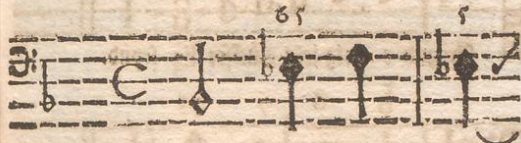 65 5